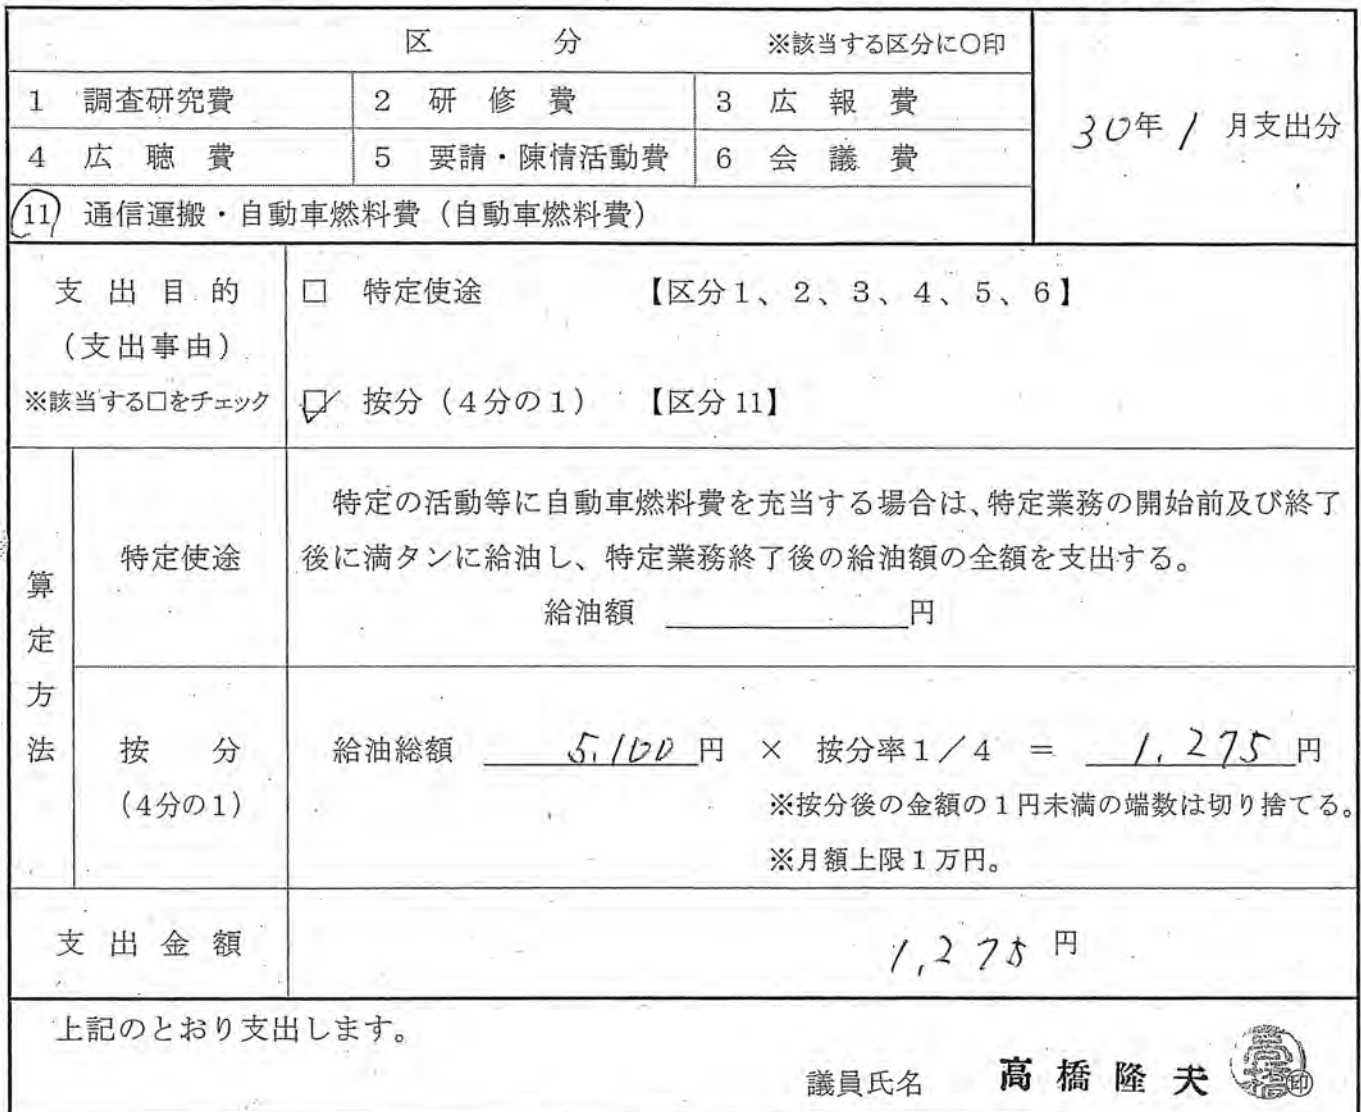 区　　　　　分　　　　　※該当する区分に〇印
1　調査研究費　2　研　修　費　3　広　報　費
30年 1 月支出分
4　広　聴　費　5　要請・陳情活動費　6　会　議　費
11　通信運搬・自動車燃料費（自動車燃料費）
支 出 目 的　□　特定使途　【区分1、2、3、4、5、6】
（支出事由）
※該当する□をチェック　☑　按分（4分の1）　【区分11】
算定方法
特定使途
特定の活動等に自動車燃料費を充当する場合は、特定業務の開始前及び終了
後に満タンに給油し、特定業務終了後の給油額の全額を支出する。
給油額　　　　　円
按　　分　給油総額　5,100円　×　按分率1／4　＝　1,275円
（4分の1）　※按分後の金額の1円未満の端数は切り捨てる。
※月額上限1万円。
支 出 金 額　1,275 円
上記のとおり支出します。
議員氏名　高 橋 隆 夫 ㊞